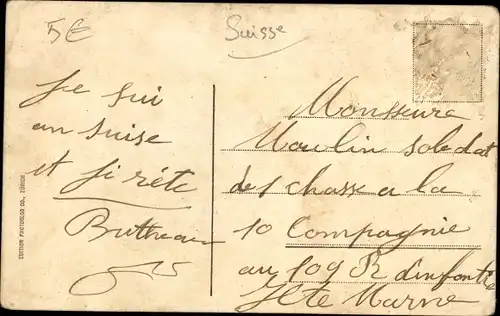 5€
Suisse
Je sui
an suise
et ji réte
Monsseure
Moulin soledat
de 1 chasse a la
10 Compagnie
au 109 R dinfontie
Hte Marne
EDITION PHOTOGLOB CO., ZÜRICH